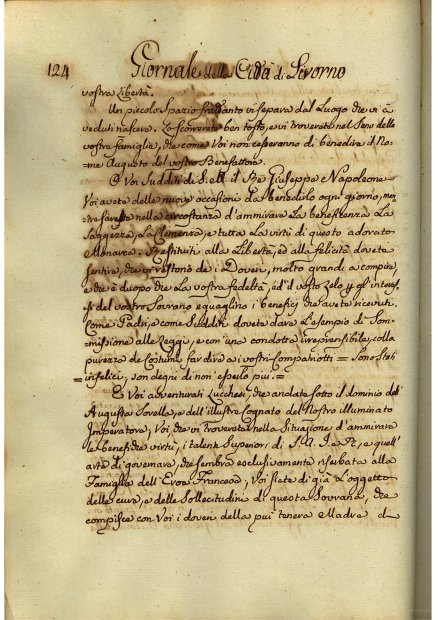 124 Giornale della Città di Livorno
vostra Libertà.
Un piccolo Spazio frattanto vi separa dal Luogo che vi à
veduti nascere. Lo scorrerete ben tosto, e vi troverete nel Seno delle
vostre famiglie, che come Voi non cesseranno di benedire il No-
me Augusto del vostro Benefattore.
E Voi Sudditi di S. M. il Re Giuseppe Napoleone
Voi avete delle nuove occasioni da benedirlo ogni giorno, men-
tre sarete nella circostanza d'ammirare La beneficenza La
Saggezza, La Clemenza, e tutta La virtù di questo adorato
Monarca. Restituiti alla Libertà, ed alla felicità dovete
sentire, che vi restono de i Doveri, molto grandi a compire,
e che è duopo che La vostra fedeltà, ed il vostro zelo p gl'interes-
si del vostro Sovrano eguaglino i benefici che avete ricevuti.
Come Padri, e come Sudditi dovete dare L'esempio di Som-
missione alle Leggi, e con una condotta irreprensibile, colla
purezza de Costumi far dire a i vostri Compatriotti = Sono Stati
= infelici, son degni di non esserlo più. =
E Voi avventurati Lucchesi, che andate sotto il dominio dell'
Augusta Sorella, e dell'illustre Cognato del Nostro illuminato
Imperatore, Voi che vi troverete nella Situazione d'ammirare
le benefiche virtù, i talenti Superiori di S. A. I. e R, e quell'
arte di governare, che sembra esclusivamente riserbata alla
Famiglia dell'Eroe Francese; Voi siete di già L'oggetto
delle cure, e delle Sollecitudini di questa Sovrana, che
compisce con Voi i doveri della più tenera Madre d